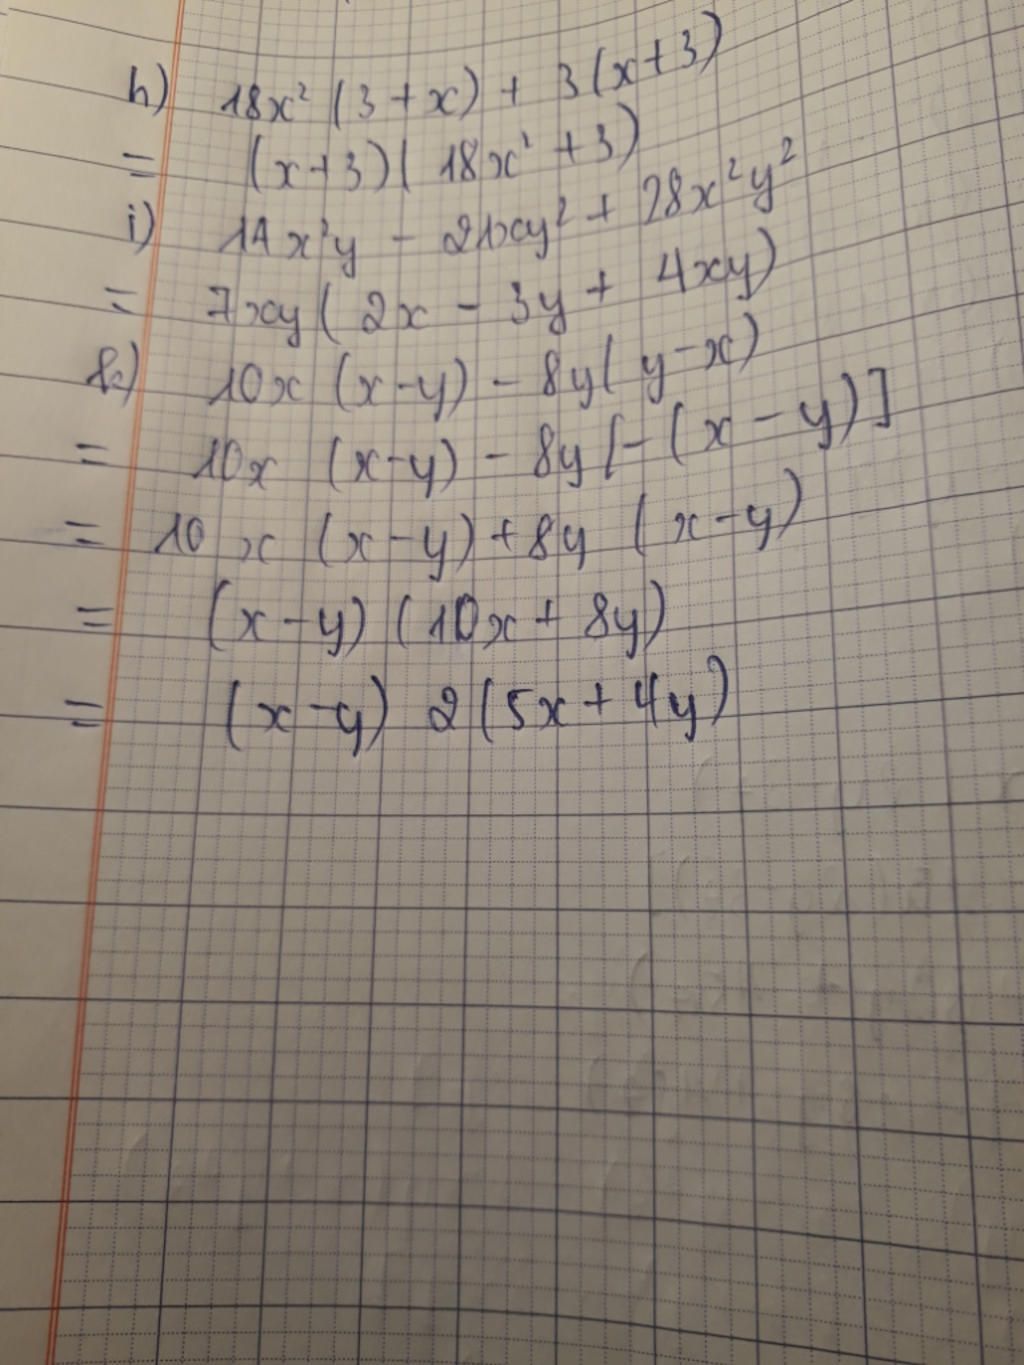 h) 18x² (3 + x) + 3 (x+3)
= (x+3) ( 18x² + 3)
i) 14x²y - 21xy² + 28x²y²
= 7xy ( 2x - 3y + 4xy)
k) 10x (x-y) - 8y ( y-x)
= 10x (x-y) - 8y [- (x - y)]
= 10 x (x-y) + 8y (x-y)
= (x-y) (10x + 8y)
= (x-y) 2 (5x + 4y)